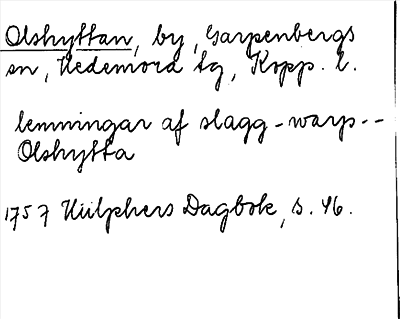 Olshyttan, by, Garpenbergs
sn, Hedemora tg, Kopp. l.
lemningar af slagg-warp--
Olshytta
1757 Hülphers Dagbok, s. 46.